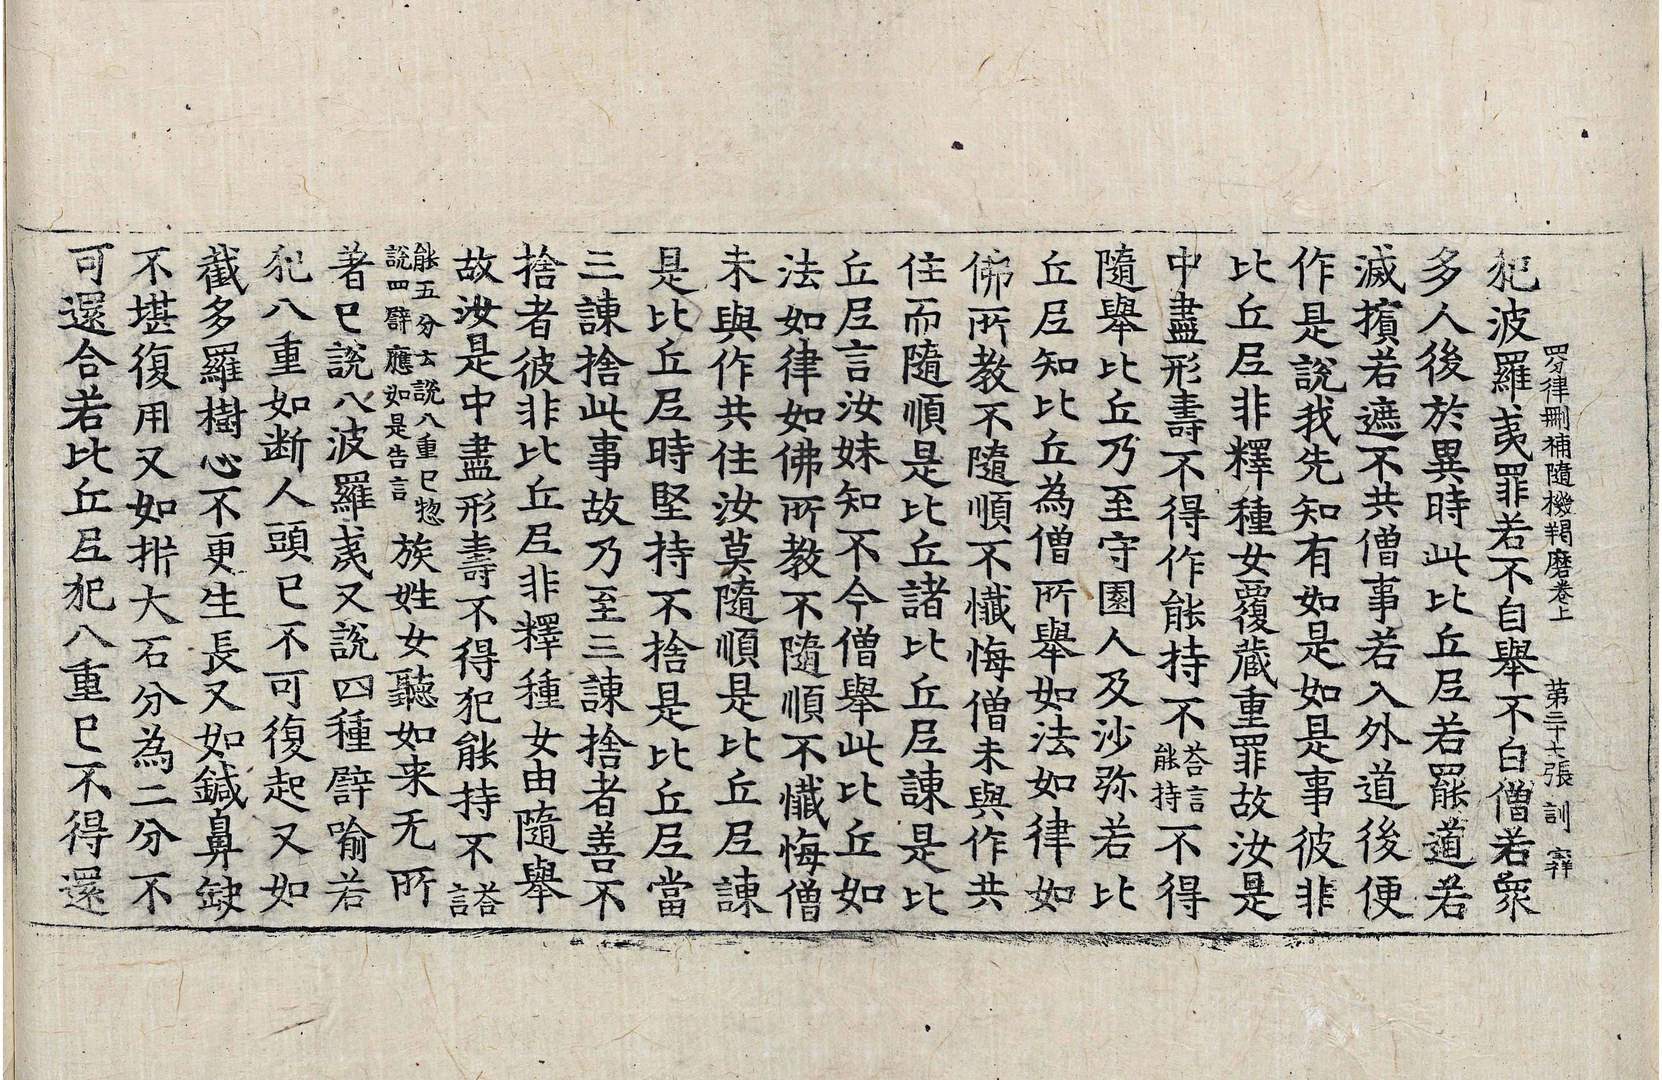 四分律刪補隨機羯磨卷上　第三十七張 訓
犯波羅夷罪若不自舉不白僧若衆
多人後於異時此比丘尼若罷道若
滅擯若遮不共僧事若入外道後便
作是說我先知有如是如是事彼非
比丘尼非釋種女覆藏重罪故汝是
中盡形壽不得作能持不答言能持不得
隨舉比丘乃至守園人及沙弥若比
丘尼知比丘為僧所舉如法如律如
佛所教不隨順不懺悔僧未與作共
住而隨順是比丘諸比丘尼諫是比
丘尼言汝妹知不今僧舉此比丘如
法如律如佛所教不隨順不懺悔僧
未與作共住汝莫隨順是比丘尼諫
是比丘尼時堅持不捨是比丘尼當
三諫捨此事故乃至三諫捨者善不
捨者彼非比丘尼非釋種女由隨舉
故汝是中盡形壽不得犯能持不答言
能五分云說八重已惣說四譬應如是告言族姓女聽如来无所
著已說八波羅夷又說四種譬喻若
犯八重如断人頭已不可復起又如
截多羅樹心不更生長又如鍼鼻缺
不堪復用又如析大石分為二分不
可還合若比丘尼犯八重已不得還